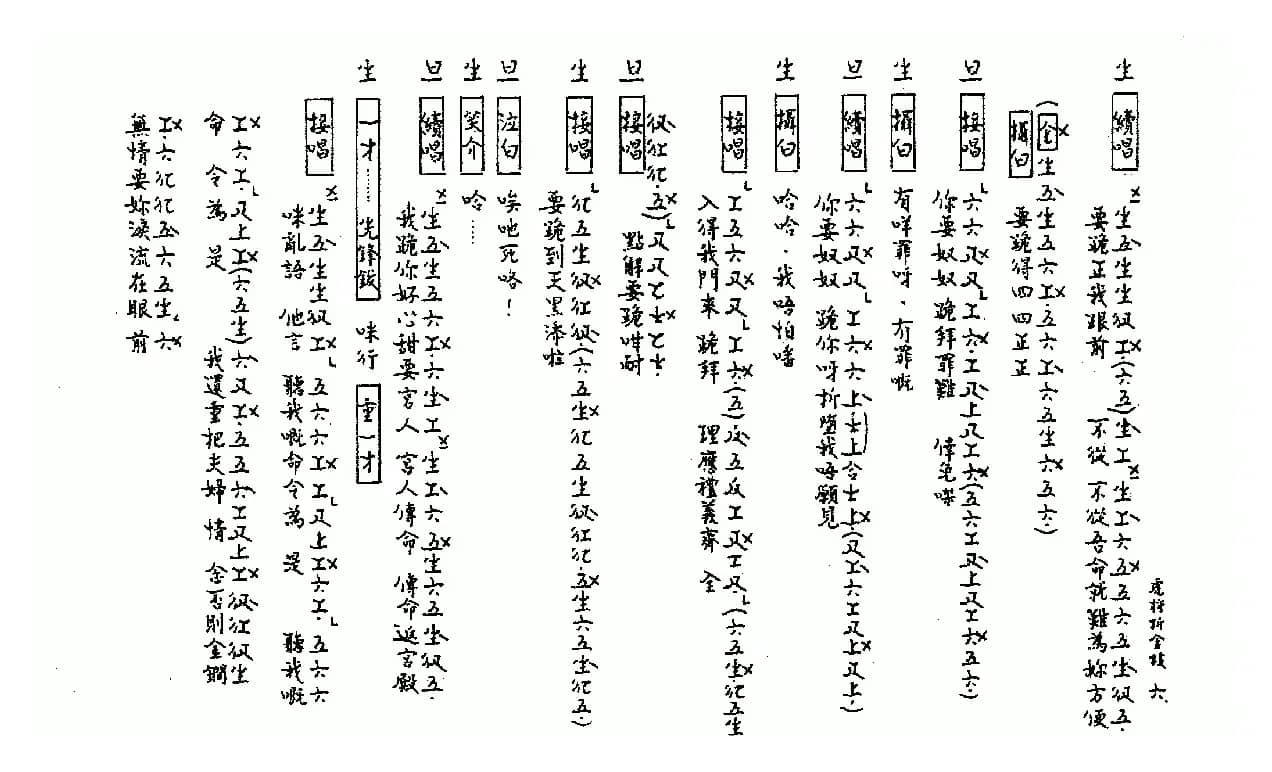 金枝 六
生 續唱 𠆾五𠆾𠆾伬工(六五)𠆾工 𠆾工六五五六五𠆾伬五.
要跪正我跟前 不從 不從吾命就難為妳方便
(仝 生五生五六工.五六工六五生六五六.)
攝白 要跪得四四正正
旦 接唱 六六尺尺工六.工尺上尺工六(五六工尺上尺工六五六.)
你要奴奴跪拜罪難 倖免㗎
生 攝白 有咩罪呀.冇罪嘅
旦 續唱 六六尺尺工六六上士上合士上.(尺工六工尺上尺上.)
你要奴奴跪你呀折墮我唔願見
生 攝白 哈哈.我唔怕噃
接唱 工五六尺尺工六.(五)反五反工尺工尺.(六五生.伬五生
入得我門來跪拜 理應禮義齊全
伬仜伬.五)尺尺乙士乙士.
旦 接唱 點解要跪咁耐
生 接唱 伬五生伬仜伬(六五生伬五生伬仜伬.五生六五生伬五.)
要跪到天黑添啦
旦 泣白 唉吔死咯！
生 笑介 哈……
旦 續唱 生五生五六工.六生工 生工六五生六五生伬五.
我跪你好心甜要言人 宮人傳命 傳命返宮殿
生 一才……先鋒鈸 咪行 重一才
接唱 生五生生伬工 五六六工工尺上工六工.五六六
咪亂語 他言 聽我嘅命令為 是 聽我嘅
工六工.尺上工(六五生)六尺工.五五六工尺上工伬仜伬生
命 令為 是 我還重把夫婦 情 念否則金鐧
工.六伬伬五六五生.六
無情要妳淚流在眼前